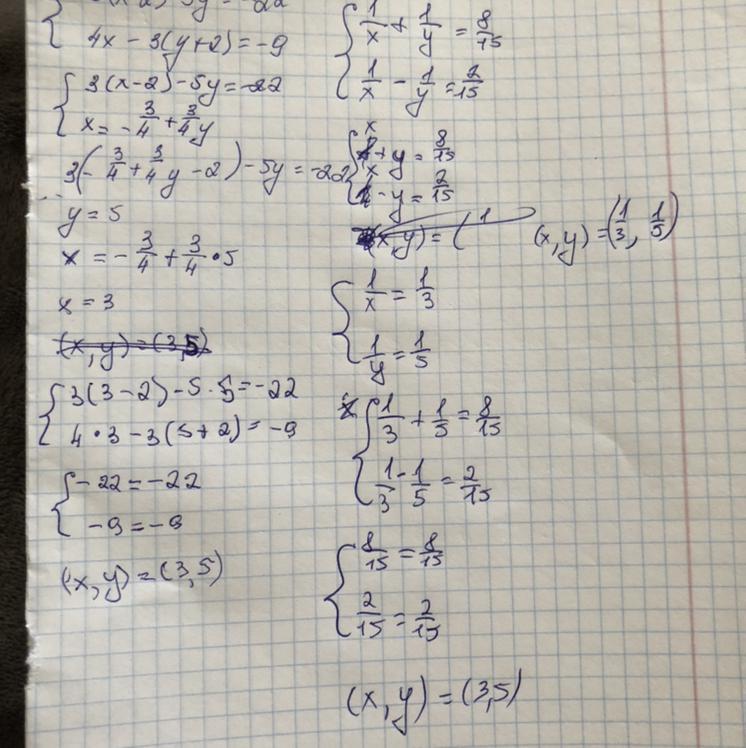 4x - 3(y+2) = -9
{ 3(x-2) - 5y = -22
x = -3/4 + 3/4 y
3(-3/4 + 3/4 y - 2) - 5y = -22
y = 5
x = -3/4 + 3/4 • 5
x = 3
(x,y) = (3,5)
{ 3(3-2) - 5·5 = -22
4•3 - 3(5+2) = -9
{ -22 = -22
-9 = -9
(x,y) = (3,5)
{ 1/x + 1/y = 8/15
1/x - 1/y = 2/15
{ x + y = 8/15
x - y = 2/15
(x,y) = ( 1
(x,y) = (1/3, 1/5)
{ 1/x = 1/3
1/y = 1/5
{ 1/3 + 1/5 = 8/15
1/3 - 1/5 = 2/15
{ 8/15 = 8/15
2/15 = 2/15
(x,y) = (3,5)